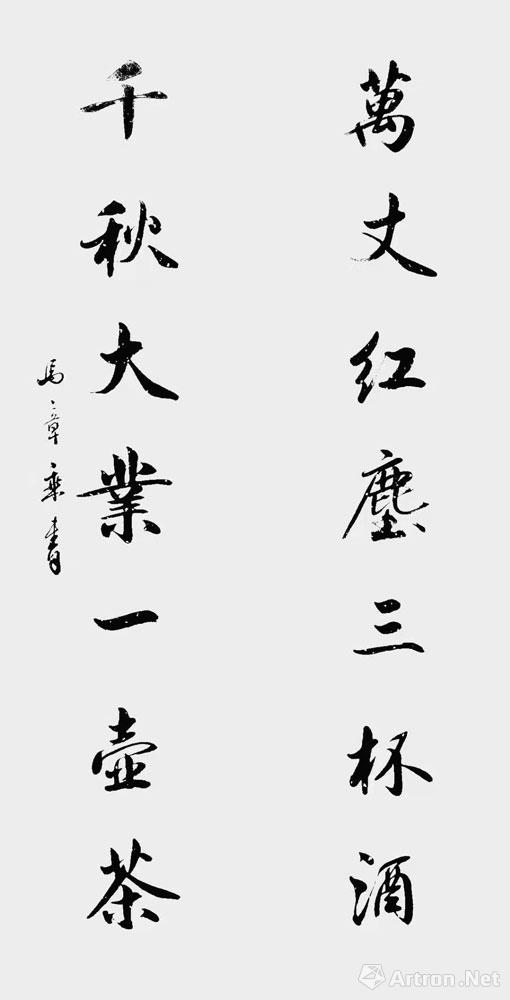 萬丈红塵三杯酒
千秋大業一壺茶
馬章乘書
Artron.Net